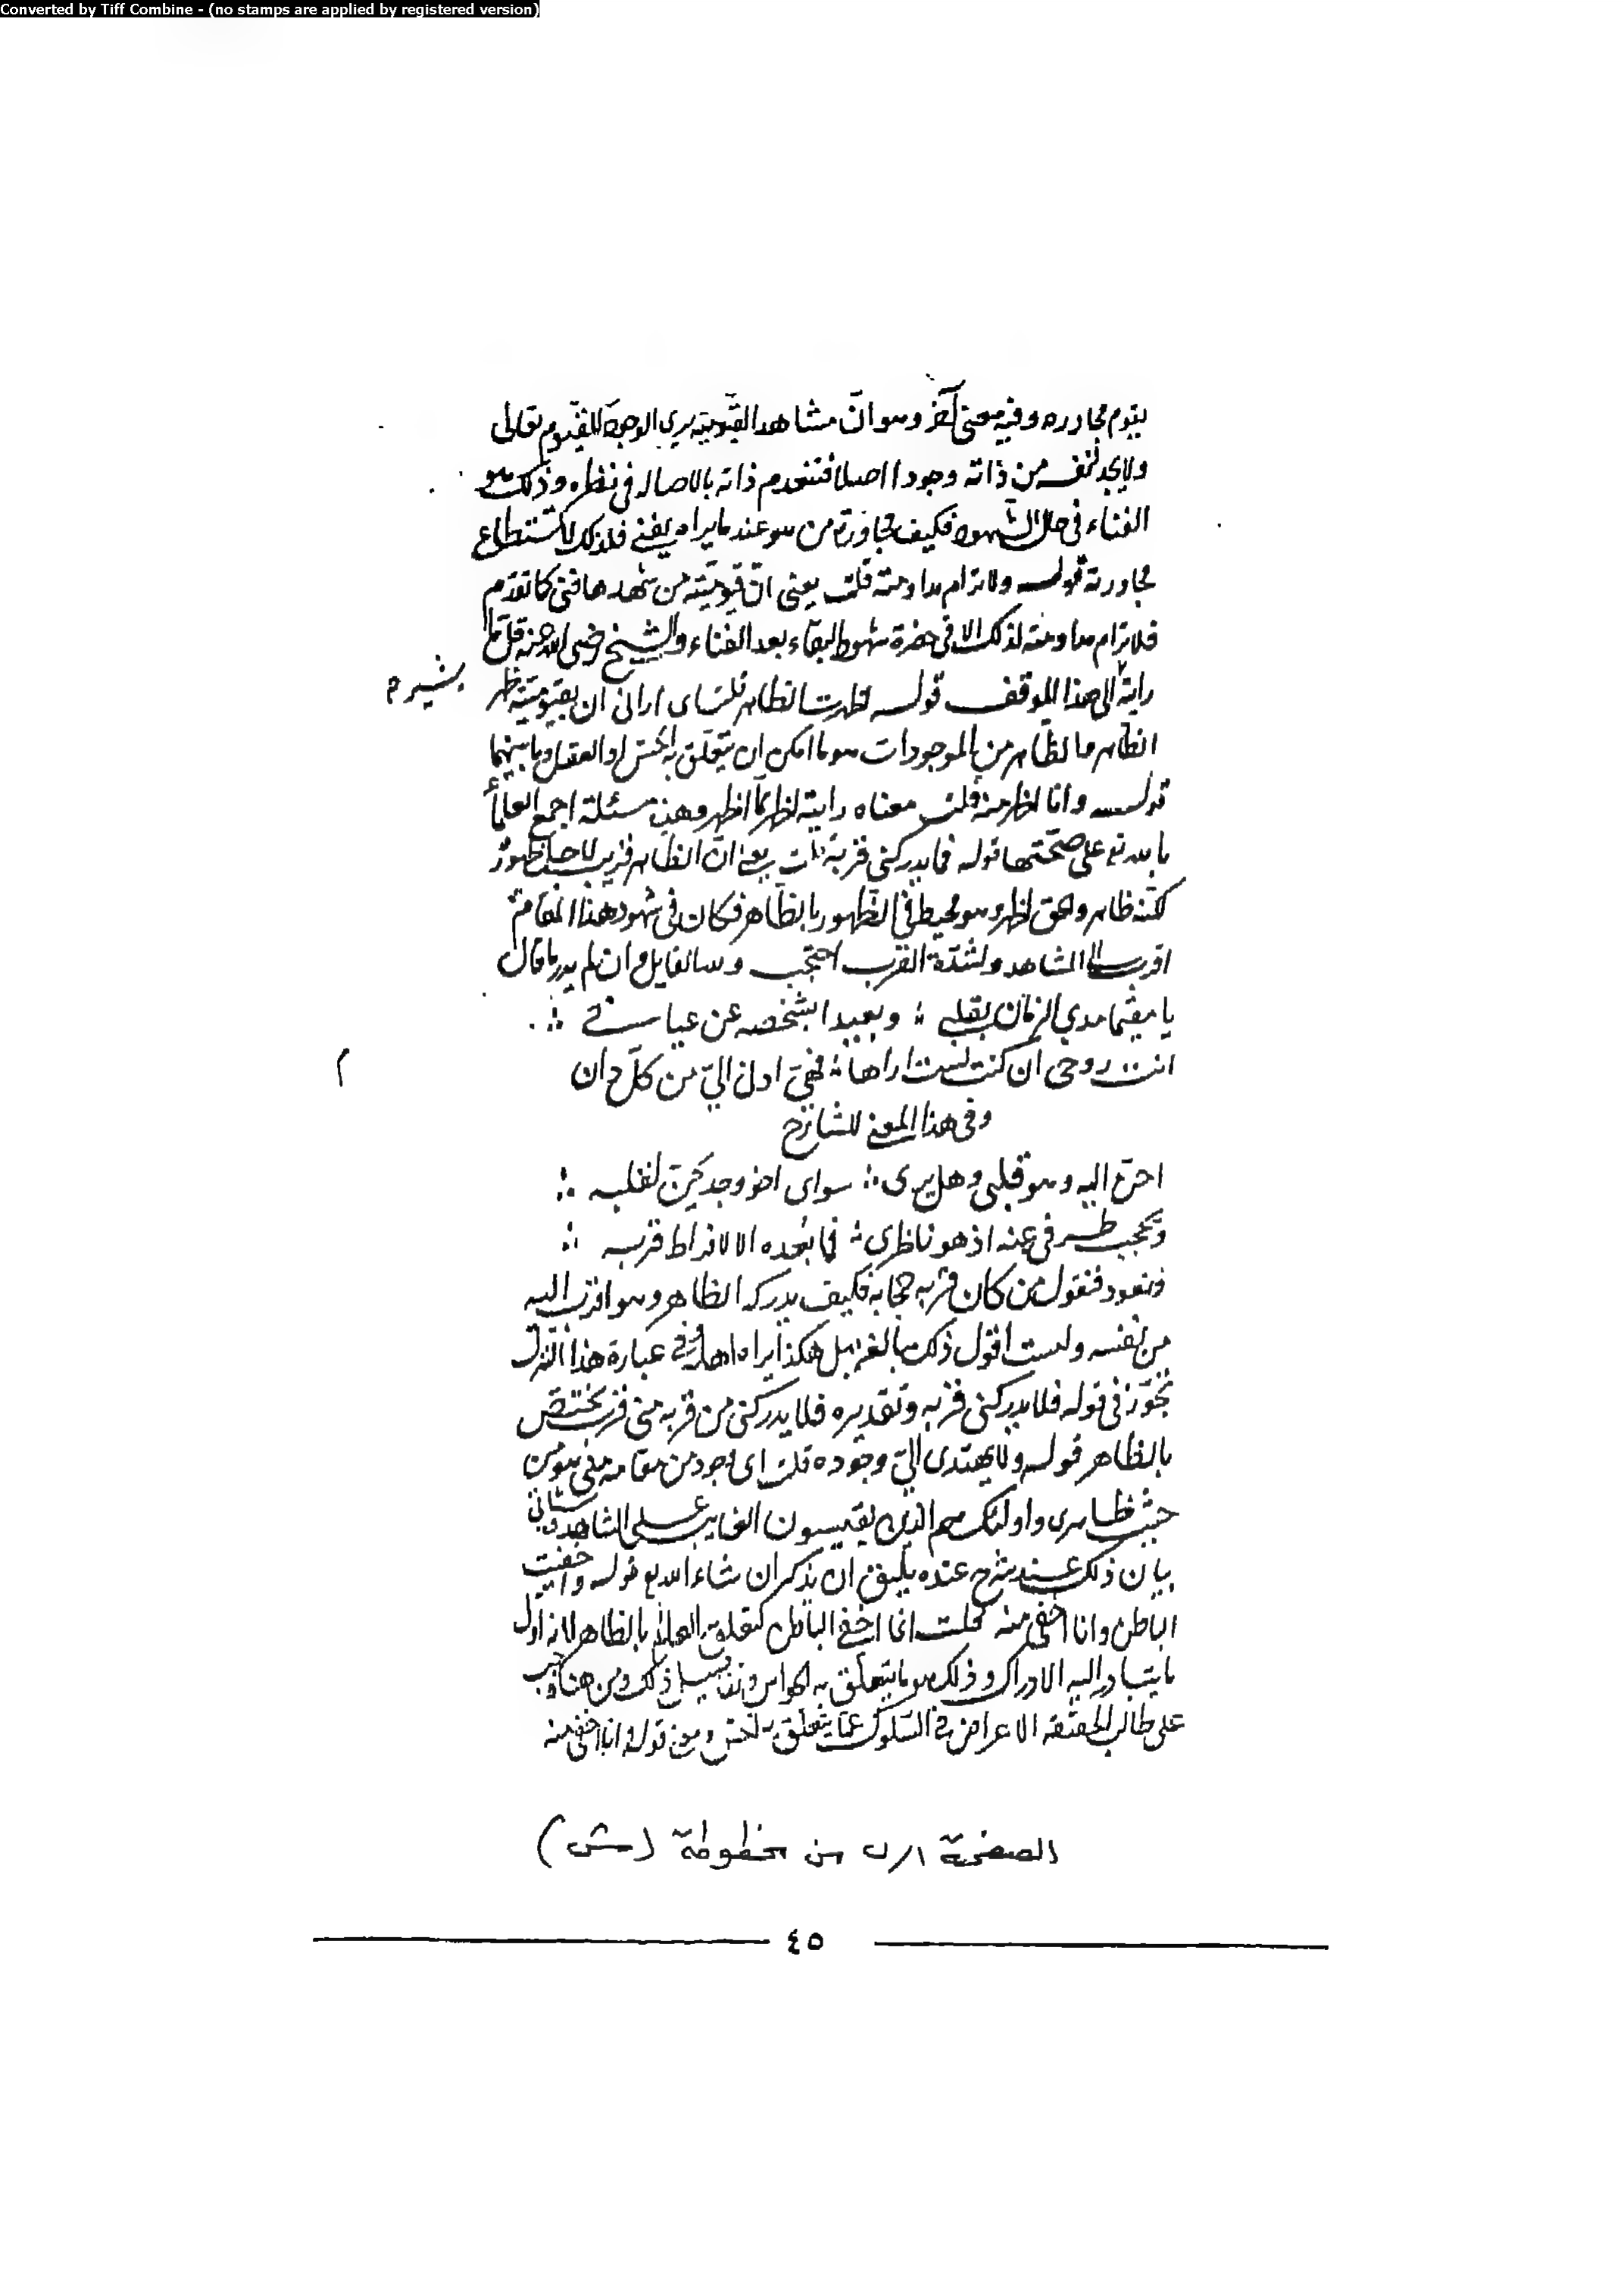 Converted by Tiff Combine - (no stamps are applied by registered version)
يقوم مجاوره وفيه معنى آخر وهو انّ مشاهد القيّوميّة يرى الوجود للقيّوم تعالى
ولا يجد لنفسه من ذاته وجودا اصلا فتنعدم ذاته بالاصالة في نظره وذلك هو
الفناء في حال الشهود فكيف مجاورة من هو عند ما يراه يفنى فلذلك لا تستطاع
مجاورته قوله ولا ترام مداومته قلت يعني انّ قيوميّته من شهدها فني كما تقدم
فلا ترام مداومته لذلك الا في حضرة شهود البقاء بعد الفناء والشيخ رضى الله عنه قلّ ما
رايته الى هذا الموقف قوله اظهرت الظاهر قلت اى ارانى ان بقيوميّته ظهر
يشير م
الظاهر ما لظاهر من الموجودات هو ما امكن ان يتعلّق به الحس او العقل وما بينهما
قوله وانا اظهر منه قلت معناه رايته اظهر ممّا اظهر وهذه مسئلة اجمع العلمأ
بالله تع على صحّتها قوله فما يدركنى قربه قلت يعنى انّ الظاهر قريب لاجل ظهوره
لكنّه ظاهر والحق اظهر وهو محيط فى الظهور بالظاهر فكان فى شهود هذا المقام
اقرب الى المشاهد ولشدّة القرب احتجب وسا لقايل وان لم يدر ما قال
يا مقيما مدي الزمان بقلبي ؛ وبعيدا بشخصه عن عياني ∴
انت روحى ان كنت لست اراها ؛ فهيَ ادنى اليّ من كلّ دان
م
وفى هذا المعنى للشارح
احنّ اليه وهو قلبى وهل يرى ∴ سواى اخو وجد يحنّ لقلبه ∴
ويحجب طرفى عنه اذ هو ناظرى ؛ فما بُعده الا لافراط قربه ∴
ونعود فنقول من كان قربه حجابه فكيف يدركه الظاهر وهو اقرب اليه
من نفسه ولست اقول ذلك مبالغة بل هكذا يراه اهله وفي عبارة هذا التنزل
تجوّز فى قوله فلا يدركنى قربه وتقديره فلا يدركنى من قربه منى قرب يختصّ
بالظاهر قوله ولا يهتدى اليّ وجوده قلت اى وجود من مقامه منى هو من
حيث ظاهرى واولئك هم الذين يقيسون الغايب على الشاهد وسياتي
بيان ذلك عند شرح عنده يليق ان يذكر ان شاء الله تع قوله واخفيت
الباطن وانا اخفى منه قلت انما اخفى الباطن لتعلق العالم بالظاهر لانه اول
ما يتبادر اليه الادراك وذلك هو ما يتعلّق به الحواس وتفاصيل ذلك ومن هنا وجب
على طالب الحقيقه الاعراض فى السّلوك عمّا يتعلق بالحس ومعنى قوله وانا اخفى منه
الصفحة ١/ب من مخطوطة (ش)
٤٥